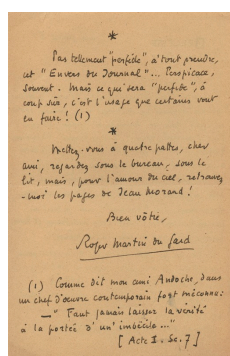 *
Pas tellement "perfide", à tout prendre,
cet "Envers du Journal"... Perspicace,
souvent. Mais ce qui sera "perfide", à
coup sûr, c'est l'usage que certains vont
en faire! (1)
*
Mettez-vous à quatre pattes, cher
ami, regardez sous le bureau, sous le
lit, mais, pour l'amour du ciel, retrouvez
-moi les pages de Jean Morand!
Bien vôtre,
Roger Martin du Gard
(1) Comme dit mon ami Andoche, dans
un chef d'œuvre contemporain fort méconnu:
—"Faut jamais laisser la vérité
à la portée d'un imbécile..."
[Acte I. Sc. 7]